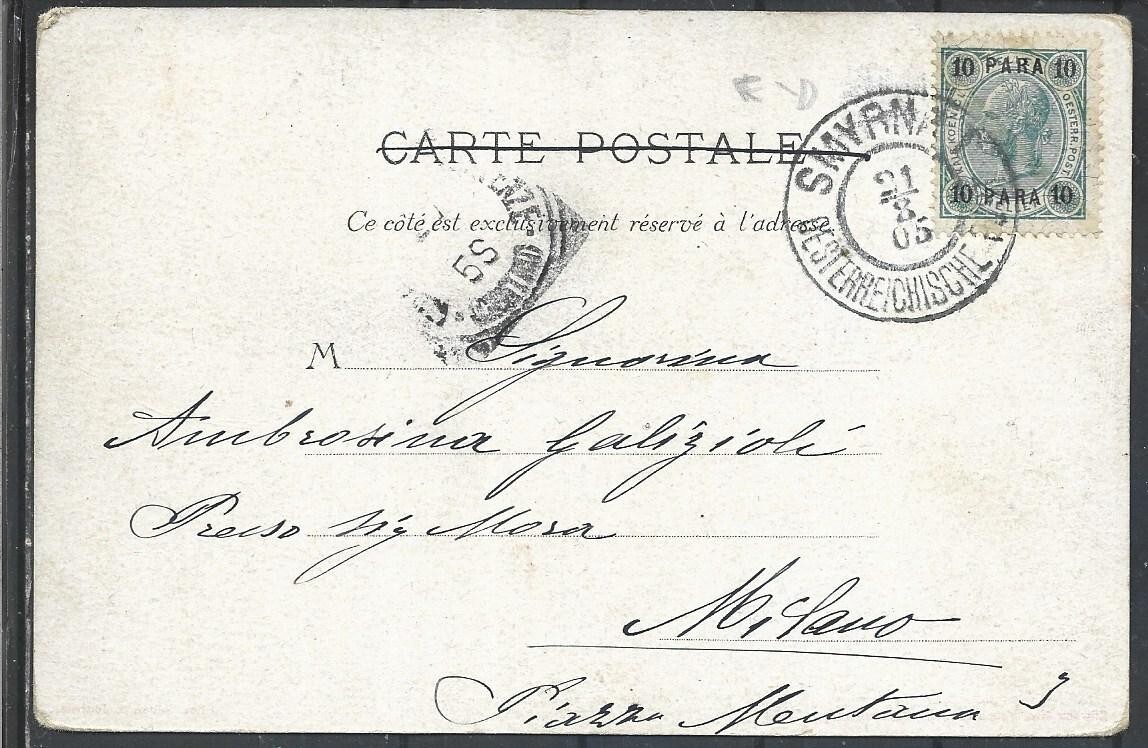 10 PARA 10
KAIS. KOENIGL. OESTERR. POST
10 PARA 10
SMYRNA
21
8
05
OESTERREICHISCHE
CARTE POSTALE
Ce côté est exclusivement réservé à l'adresse.
5S
M Signorina
Ambrosina Galizioli
Presso Sig Mora
Milano
Piazza Mentana 3